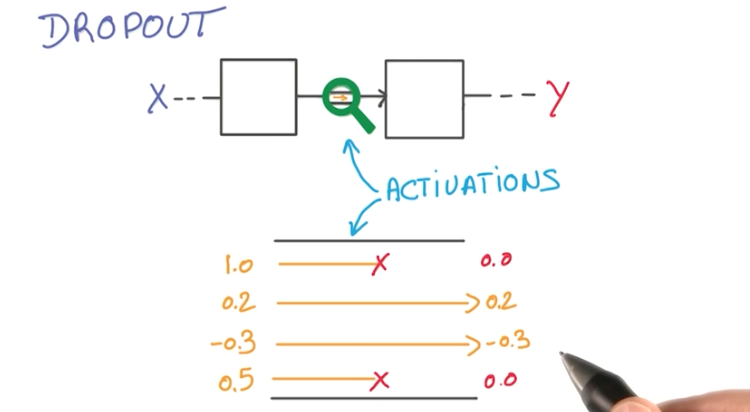 DROPOUT
X Y
ACTIVATIONS
1.0 X 0.0
0.2 0.2
-0.3 -0.3
0.5 X 0.0